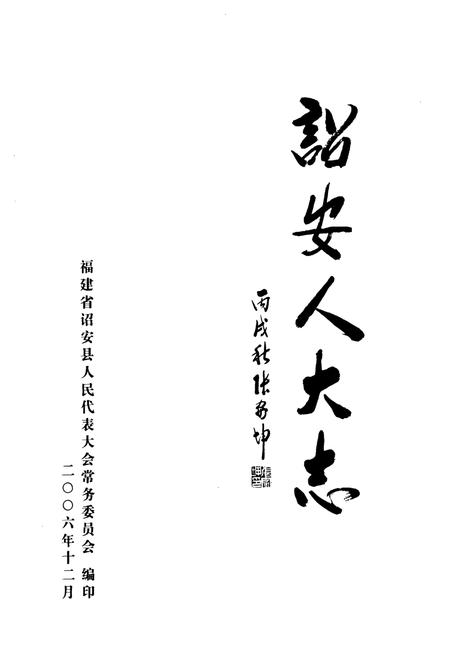 詔安人大志
丙戌秋张安坤
福建省诏安县人民代表大会常务委员会 编印
二〇〇六年十二月